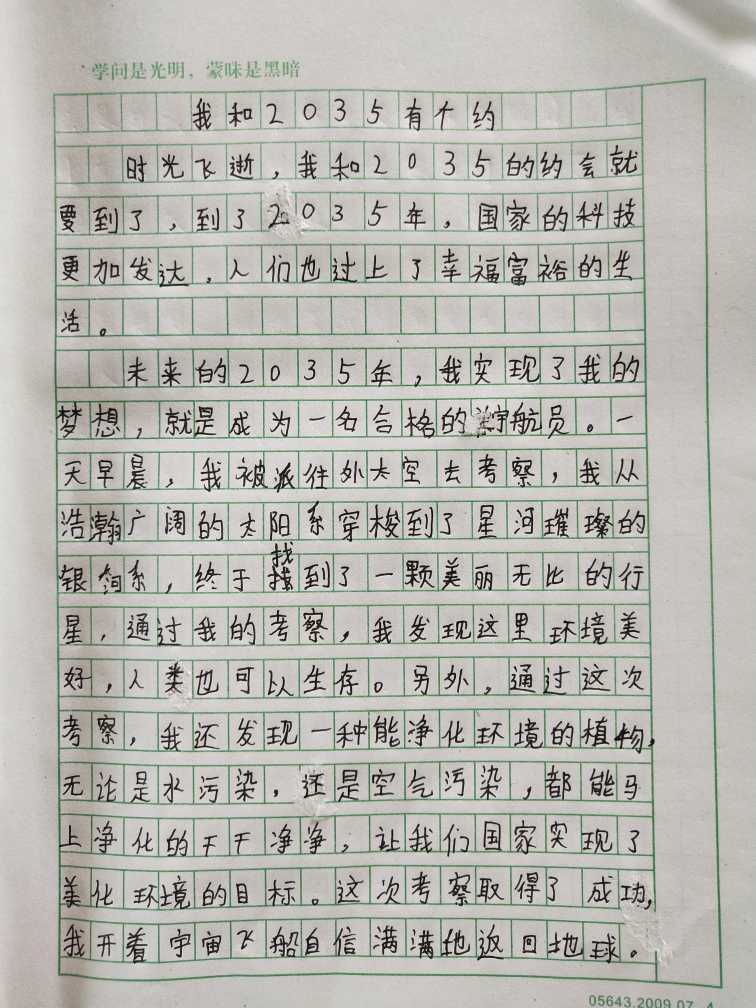 学问是光明，蒙昧是黑暗
我和2035有个约
时光飞逝，我和2035的约会就
要到了，到了2035年，国家的科技
更加发达，人们也过上了幸福富裕的生
活。
未来的2035年，我实现了我的
梦想，就是成为一名合格的宇航员。一
天早晨，我被派往外太空去考察，我从
浩瀚广阔的太阳系穿梭到了星河璀璨的
银河系，终于找到了一颗美丽无比的行
星，通过我的考察，我发现这里环境美
好，人类也可以生存。另外，通过这次
考察，我还发现一种能净化环境的植物，
无论是水污染，还是空气污染，都能马
上净化的干干净净，让我们国家实现了
美化环境的目标。这次考察取得了成功，
我开着宇宙飞船自信满满地返回地球。
05643.2009.07